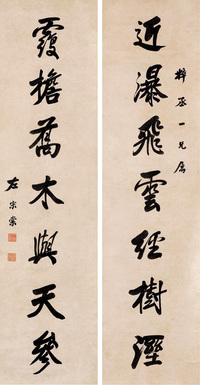 近瀑飛雲經樹溼
粹丞一兄屬
覆檐喬木與天參
左宗棠